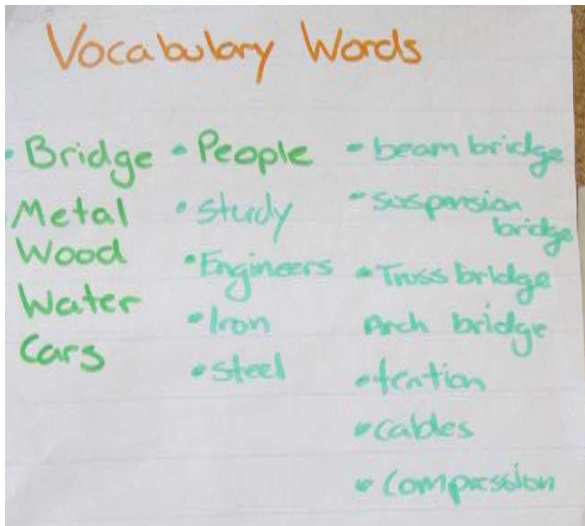 Vocabulary Words
• Bridge
Metal
Wood
Water
Cars
• People
• study
• Engineers
• Iron
• steel
• beam bridge
• suspension
bridge
• Truss bridge
Arch bridge
• tention
• cables
• compression